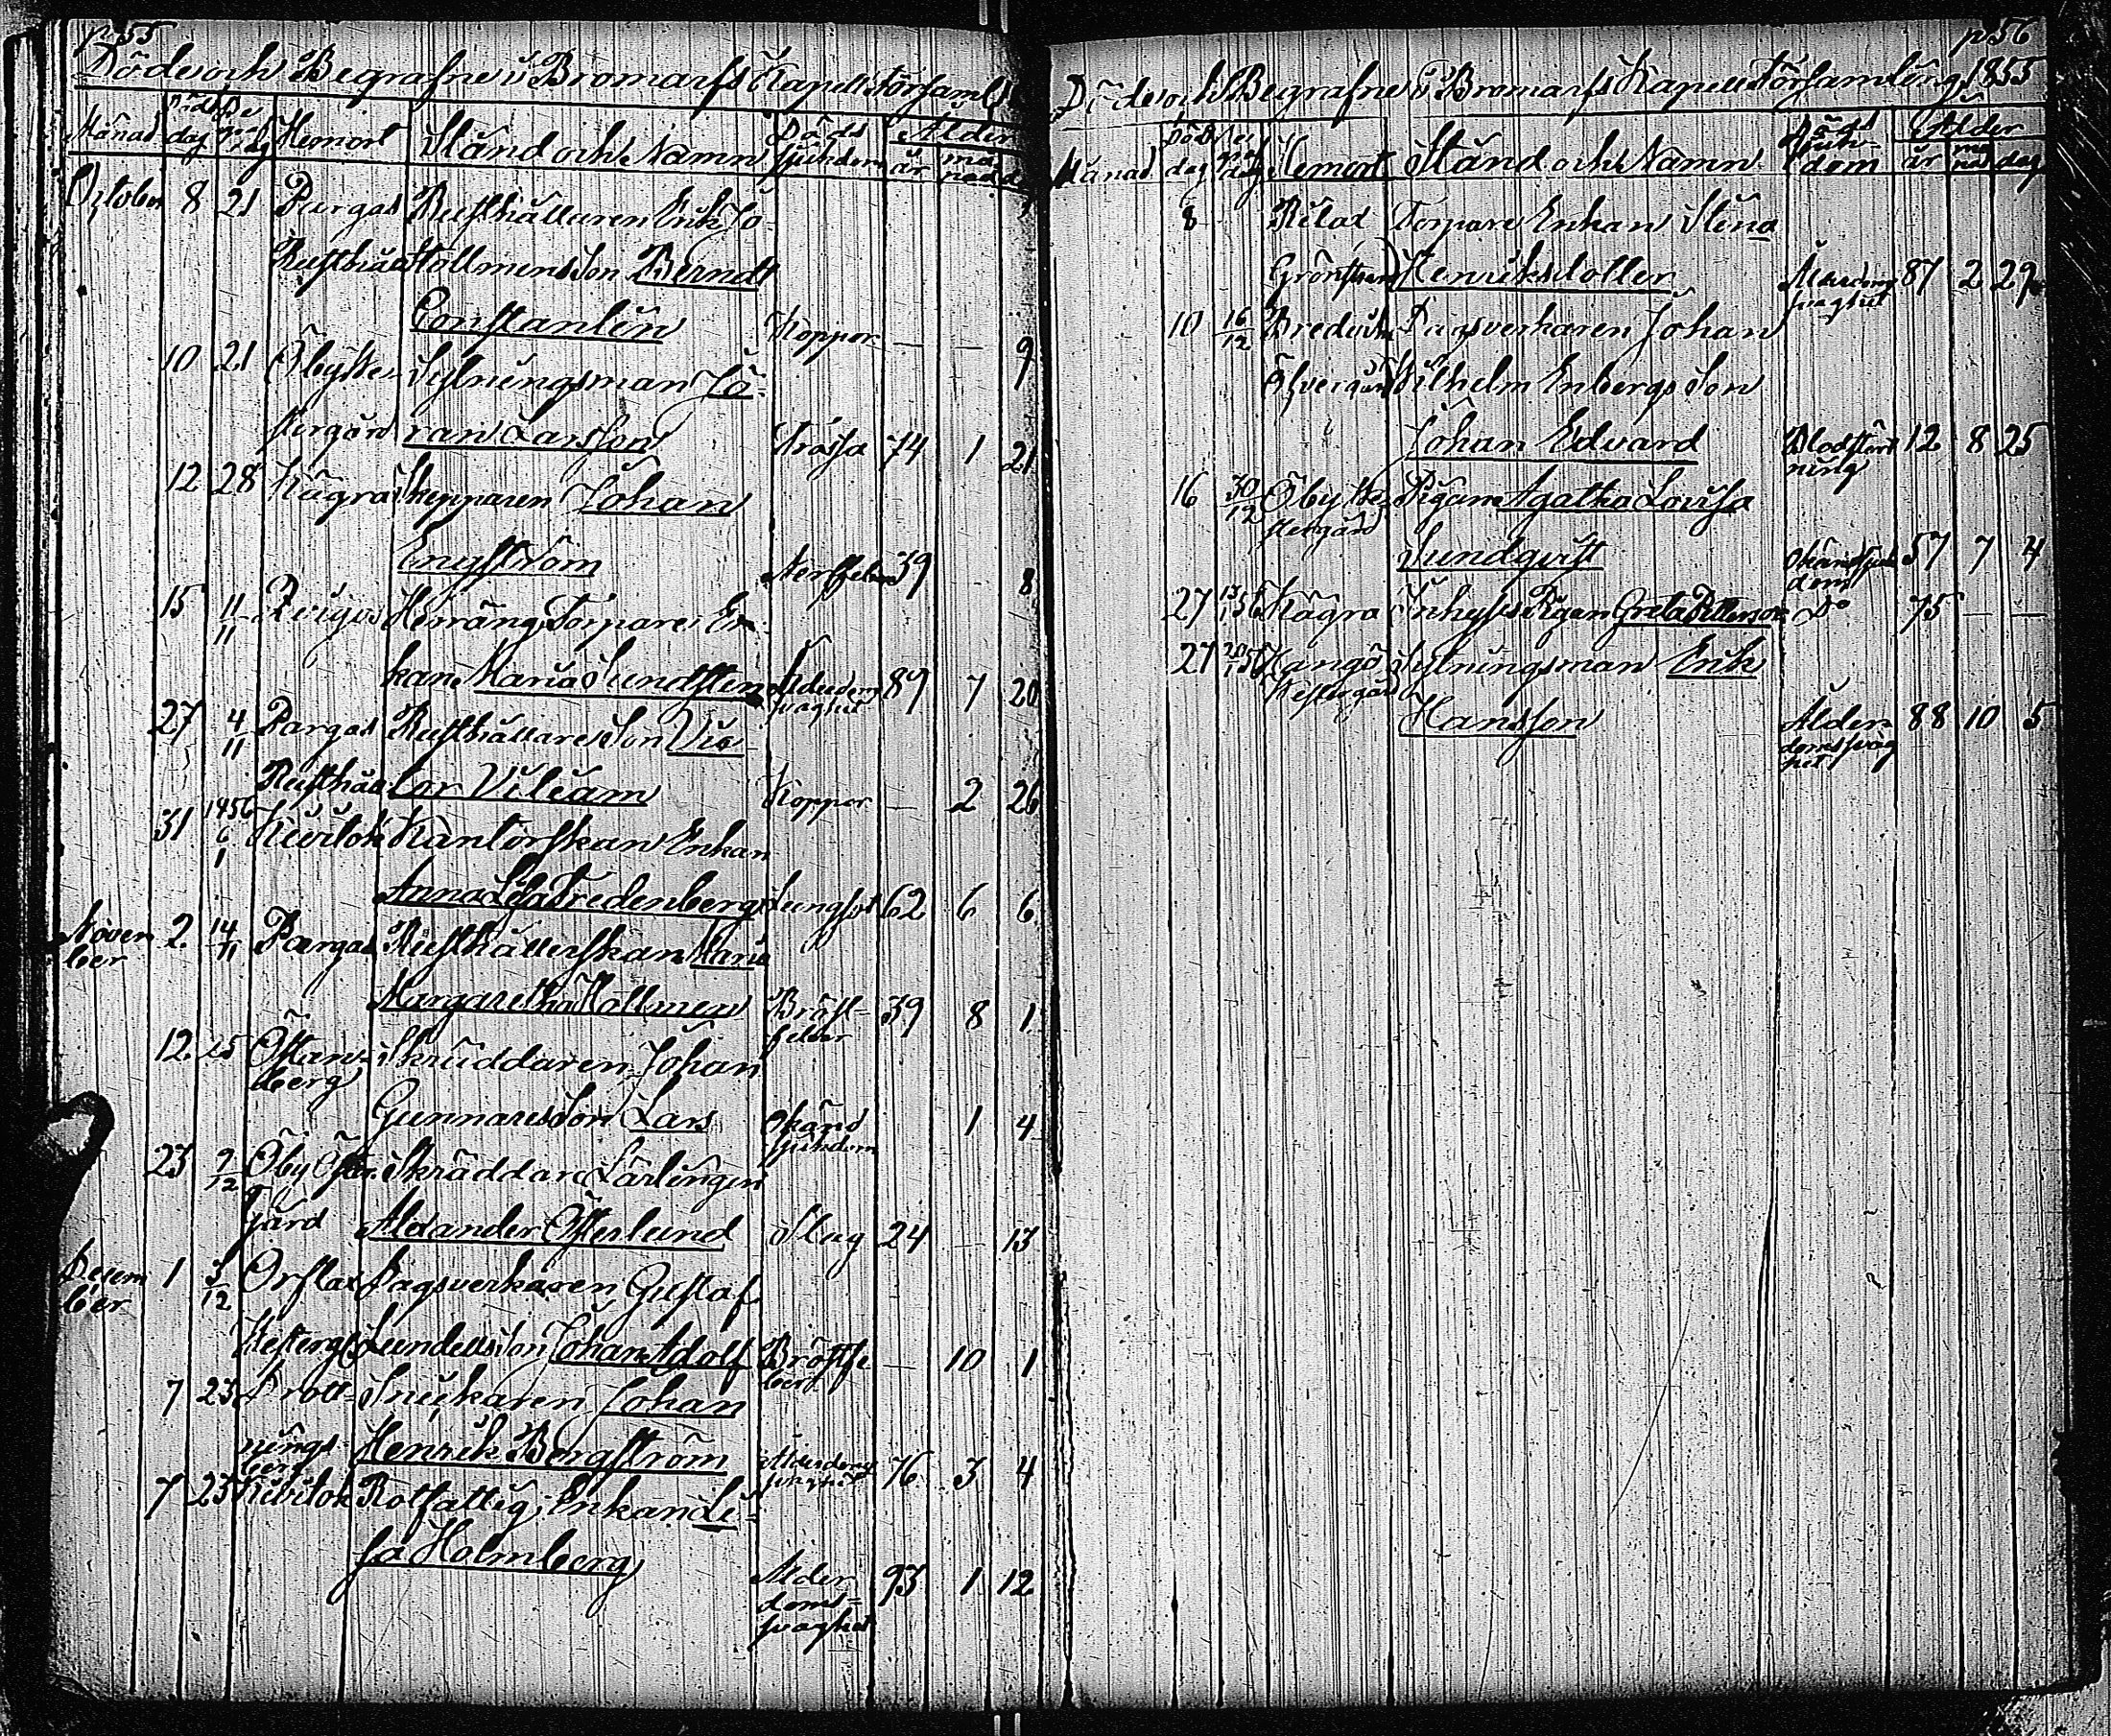 p 55
Döde och Begrafne i Bromarfs Kapell Församl
Månad Död dag Be graf dag Hemort Stånd och Namn Döds sjukdom Ålder år må nad d
October 8 21 Pargas Rusthållaren Erik Jo
Rusthåll Hollmens Son Berndt
Constantin Koppor — — 9
10 21 Öby Ves Sytningsman Jö-
tergård ran Larsson Frossa 74 1 21
12 28 Kagra Skepparen Johan
Engström Nerffeber 39 8
15 11/11 Hersäng Torpare En
kan Maria Sundsten Ålderdoms svaghet 89 7 20
27 4/11 Pargas Rusthållare Son Vic
Rusthåll tor Viliam Koppor — 2 26
31 1856 6/1 Kivitok Kantorskan Enkan
Anna Lisa Fredenberg Lungsot 62 6 6
Novem ber 2 14/11 Pargas Rusthållerskan Maria
Margaretha Hollmen Bröst feber 39 8 1
12 25 Östan berg Skräddaren Johan
Gunnars Son Lars Okänd sjukdom 1 4
23 9/12 Öby Öster Skräddare Lärlingen
gård Alexander Österlund Slag 24 — 13
Decem ber 1 3/12 Orslax Dagsverkaren Gustaf
Vesterg Lundells Son Johan Adolf Bröstfe ber — 10 1
7 23 Drott- Snickaren Johan
nings berg Henrik Bergström Ålderdoms svaghet 76 3 4
7 23 Kivitok Rotfattig Enkan Li-
sa Holmberg Ålder doms- svaghet 93 1 12
p 56
Döde och Begrafne i Bromarfs Kapell Församling 1855
Månad Död dag Be graf dag Hemort Stånd och Namn Döds Sjuk- dom Ålder år må nad dag
8 Rilax Torpare Enkan Stina
Grönstrand Henriksdotter Ålderdoms svaghet 87 2 29
10 16/12 Bredvik Dagsverkaren Johan
Öfvergård Vilhelm Enbergs Son
Johan Edvard Blodstört ning 12 8 25
16 30/12 Öby Ve- stergård Pigan Agatha Lovisa
Sundqvist Okänd sjuk dom 57 7 4
27 13/1 56 Kagra Inhyses Pigan Greta Pettersdr Do 75 — —
27 20/1 56 Hangö Vestergård Sytningsman Erik
Hansson Ålder- doms svag het 88 10 5